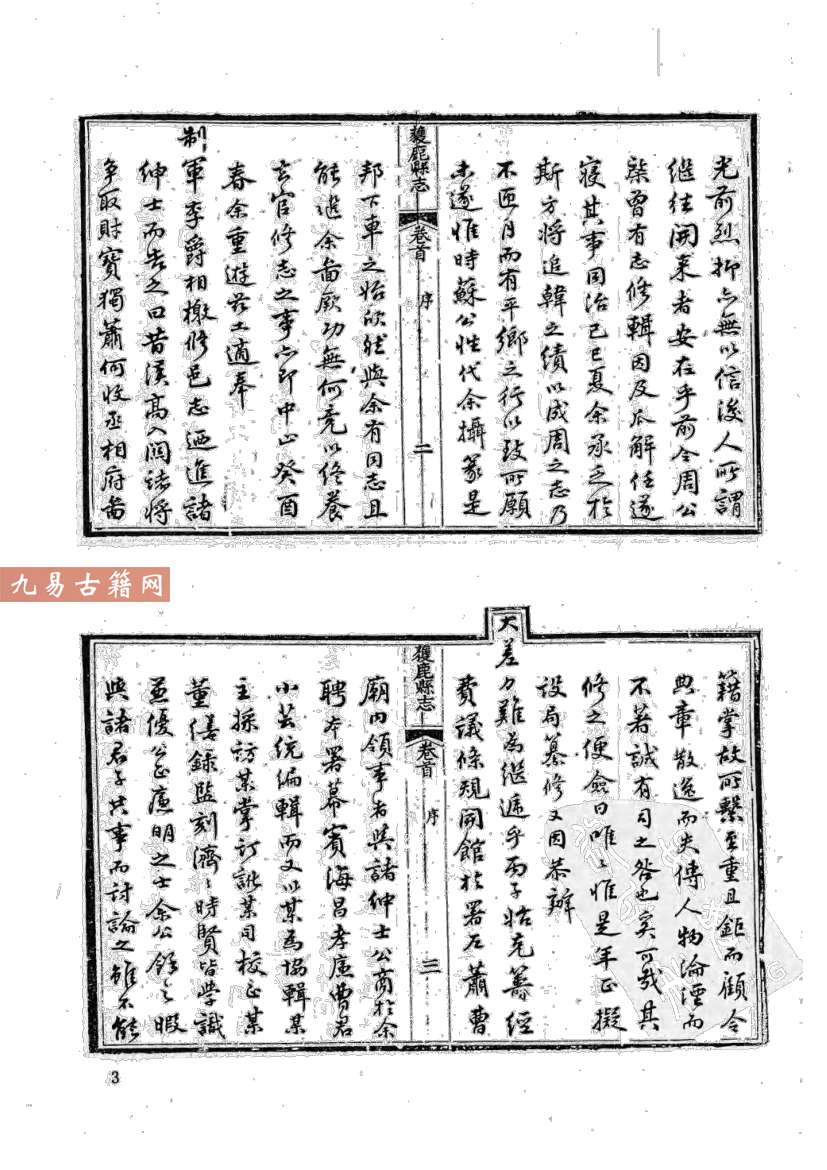 光前烈抑亦無以信後人所謂
繼往開來者安在乎前令周公
棨曾有志修輯因及瓜解任遂
寢其事同治己巳夏余承乏於
斯方將追韓之績以成周之志乃
不匝月而有平鄉之行以致所願
未遂惟時蘇公性代余攝篆是
獲鹿縣志
卷首
序
二
邦下車之始欣然與余有同志且
能繼余啚厥功無何竟以終養
去官修志之事亦即中止癸酉
春余重遊茲土適奉
制軍李爵相檄修邑志迺進諸
紳士而告之曰昔漢高入關諸將
爭取財寶獨蕭何收丞相府啚
九易古籍网
籍掌故所繫至重且鉅而顧令
典章散逸而失傳人物淪湮而
不著誠有司之咎也奚可哉其
修之便僉曰唯唯惟是年正擬
設局纂修又因恭辦
大差力難為繼遞乎丙子始克籌經
費議條規開館於署左蕭曹
獲鹿縣志
卷首
序
三
廟內領事者與諸紳士公商於余
聘本署幕賓海昌孝廉曹君
小芸統編輯而又以某為協輯某
主採訪某掌訂訛某司校正某
董繕錄監刻濟濟時賢皆學識
並優公正廉明之士余公餘之暇
與諸君子共事而討論之雖不能
3